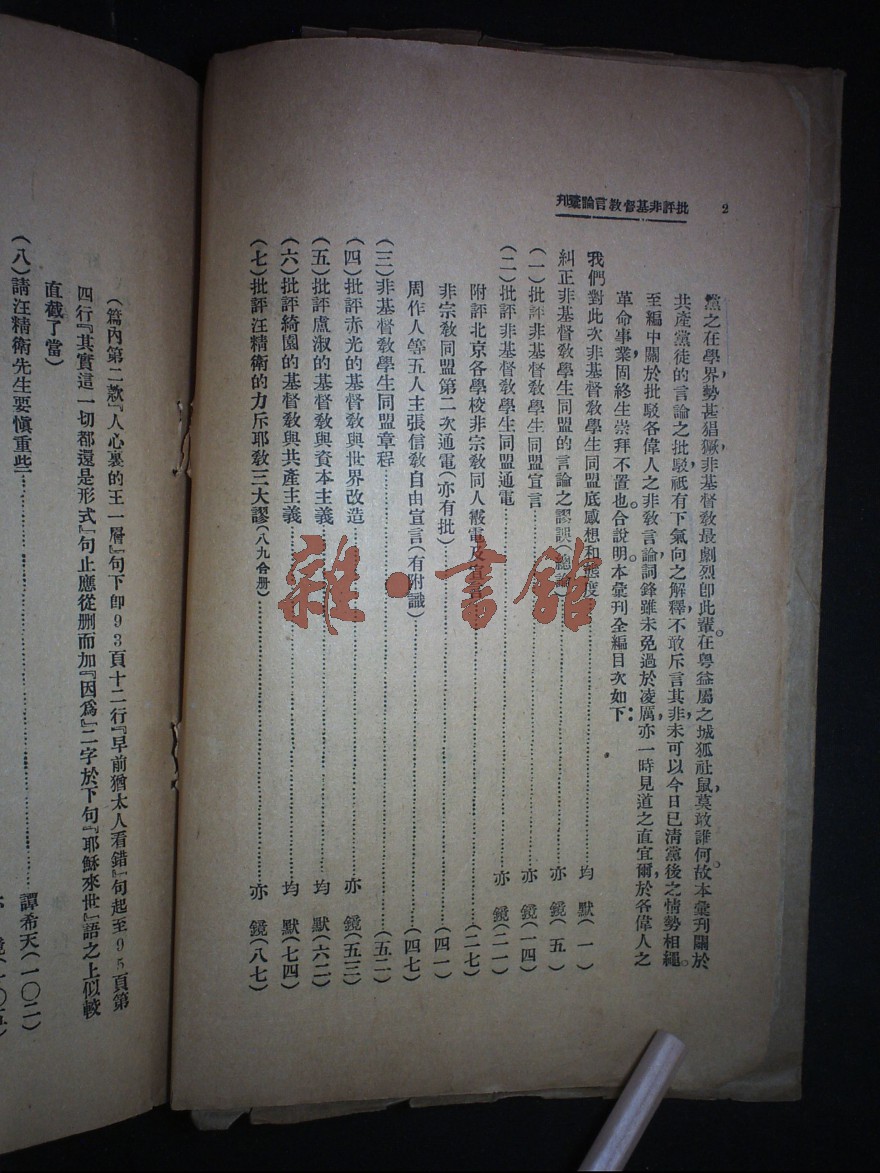 批評非基督教言論彙刊
2
黨之在學界,勢甚猖獗,非基督敎最劇烈卽此輩。在粤益屬之城狐社鼠,莫敢誰何。故本彙刊關於
共產黨徒的言論之批駁,祗有下氣向之解釋,不敢斥言其非,未可以今日已淸黨後之情勢相繩。
至編中關於批駁各偉人之非敎言論,詞鋒雖未免過於凌厲,亦一時見道之直宜爾,於各偉人之
革命事業,固終生崇拜不置也。合說明。本彙刊全編目次如下:
我們對此次非基督敎學生同盟底感想和態度……均 默(一)
糾正非基督敎學生同盟的言論之謬誤(總論)……亦 鏡(五)
(一)批評非基督敎學生同盟宣言……亦 鏡(一四)
(二)批評非基督敎學生同盟通電……亦 鏡(二一)
附評北京各學校非宗敎同人霰電及宣言……(二七)
非宗敎同盟第二次通電(亦有批)……(四一)
周作人等五人主張信敎自由宣言(有附識)……(四七)
(三)非基督敎學生同盟章程……(五二)
(四)批評赤光的基督敎與世界改造……亦 鏡(五三)
(五)批評盧淑的基督敎與資本主義……均 默(六二)
(六)批評綺園的基督敎與共產主義……均 默(七四)
(七)批評汪精衛的力斥耶敎三大謬(八九合册)……亦 鏡(八七)
(篇內第二欵『人心裏的王一層』句下卽93頁十二行『早前猶太人看錯』句起至95頁第
四行『其實這一切都還是形式』句止應從删而加『因爲』二字於下句『耶穌來世』語之上似較
直截了當)
(八)請汪精衛先生要愼重些……譚希天(一〇二)
亦 鏡(一〇五)
雜·書館